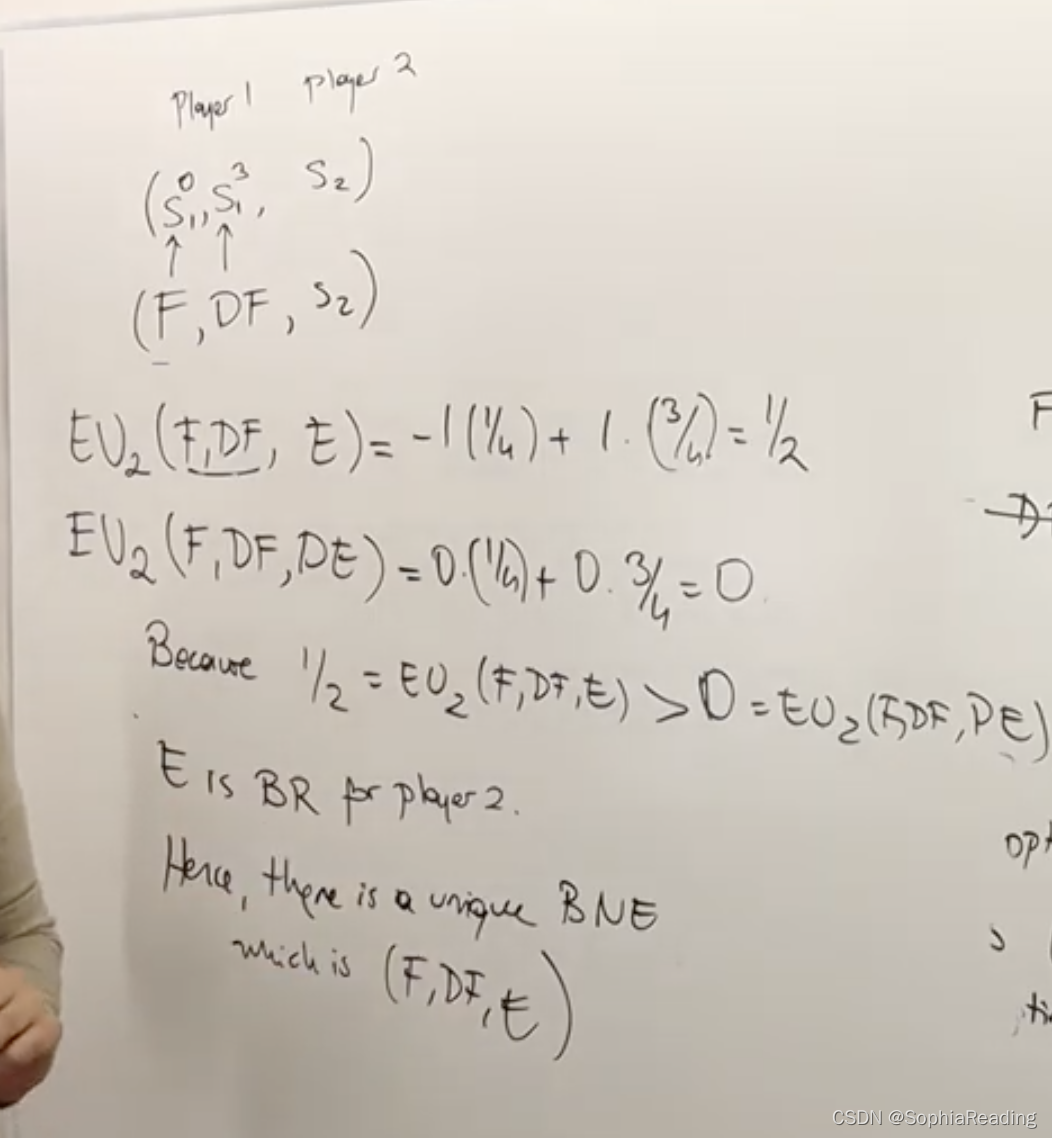 Player 1 player 2
(S₁⁰, S₁³, S₂)
↑ ↑
(F, DF, S₂)
EU₂(F,DF, E) = -1(1/4) + 1·(3/4) = 1/2
EU₂(F,DF,DE) = 0·(1/4) + 0·3/4 = 0
Because 1/2 = EU₂(F,DF,E) > 0 = EU₂(F,DF,DE)
E is BR for player 2.
Hence, there is a unique BNE
which is (F,DF,E)
F
opt
CSDN @SophiaReading